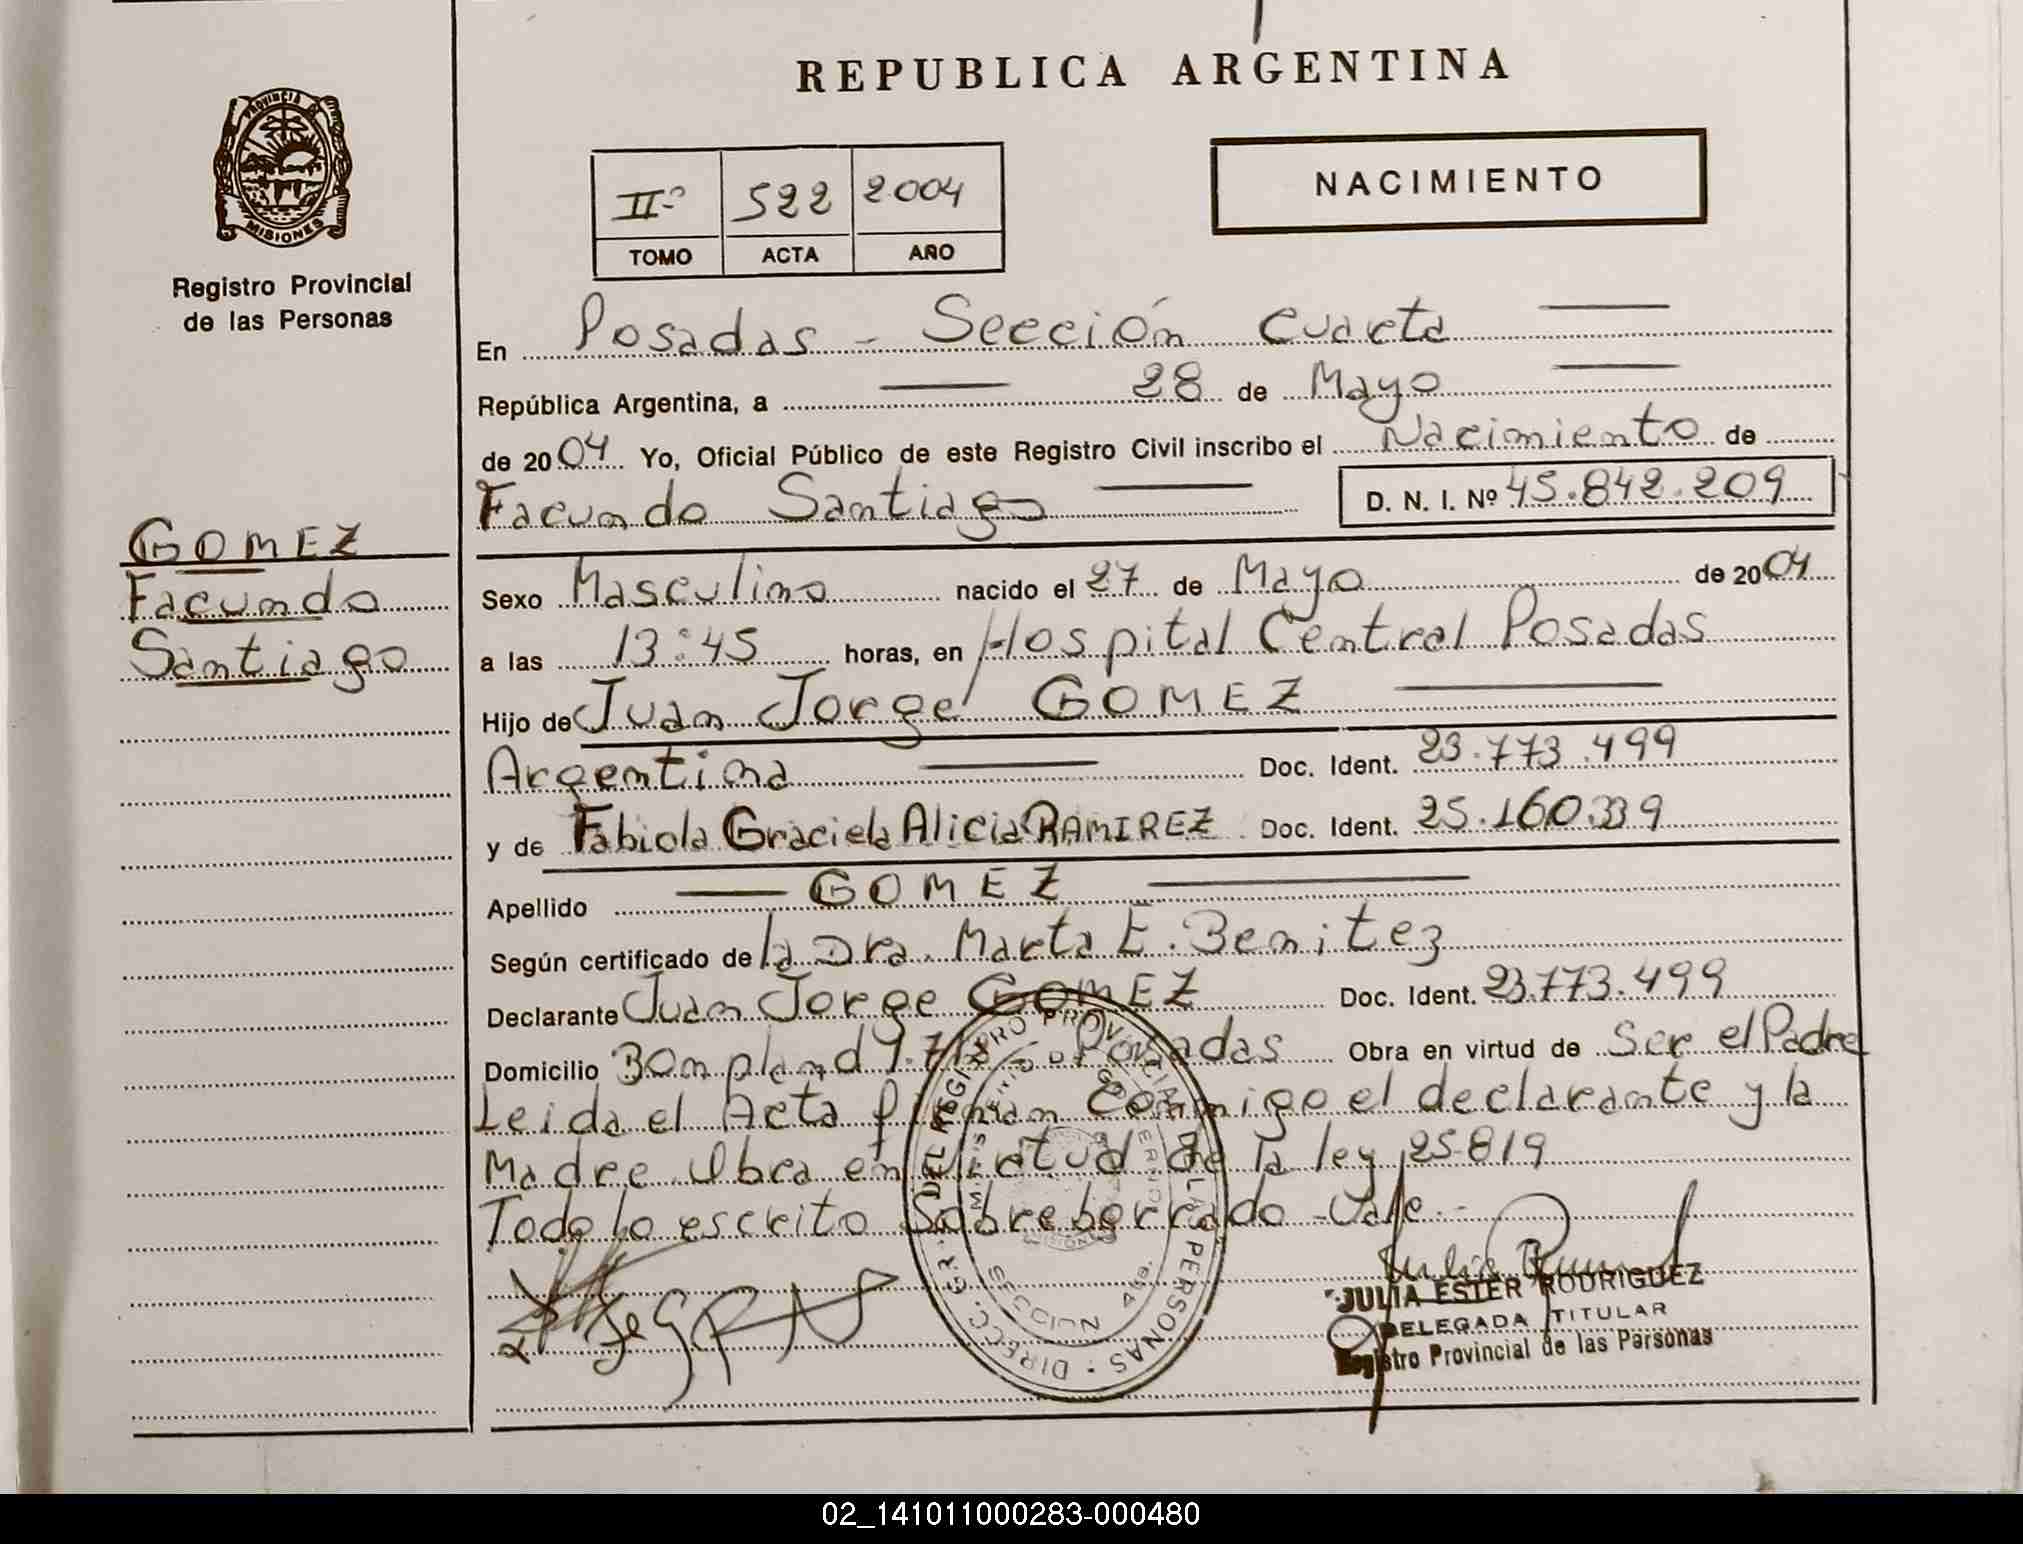 REPUBLICA ARGENTINA
PROVINCIA DE
MISIONES
Registro Provincial
de las Personas
NACIMIENTO
IIº 522 2004
TOMO ACTA AÑO
En Posadas - Sección Cuarta
República Argentina, a 28 de Mayo
de 2004 Yo, Oficial Público de este Registro Civil inscribo el Nacimiento de
Facundo Santiago D. N. I. Nº 45.842.209
GOMEZ
Facundo
Santiago
Sexo Masculino nacido el 27 de Mayo de 2004
a las 13:45 horas, en Hospital Central Posadas
Hijo de Juan Jorge GOMEZ
Argentina Doc. Ident. 23.773.499
y de Fabiola Graciela Alicia RAMIREZ Doc. Ident. 25.160.339
Apellido GOMEZ
Según certificado de la Dra. Marta E. Benitez
Declarante Juan Jorge GOMEZ Doc. Ident. 23.773.499
Domicilio Bompland Posadas Obra en virtud de Ser el Padre
Leida el Acta firman Conmigo el declarante y la
Madre Obra en Virtud de la ley 25819
Todo lo escrito Sobre borrado - Vale.-
DIRECC. GR. DEL REGISTRO PROVINCIAL DE LAS PERSONAS
SECCION 4ta.
JULIA ESTER RODRIGUEZ
DELEGADA TITULAR
Registro Provincial de las Personas
02_141011000283-000480